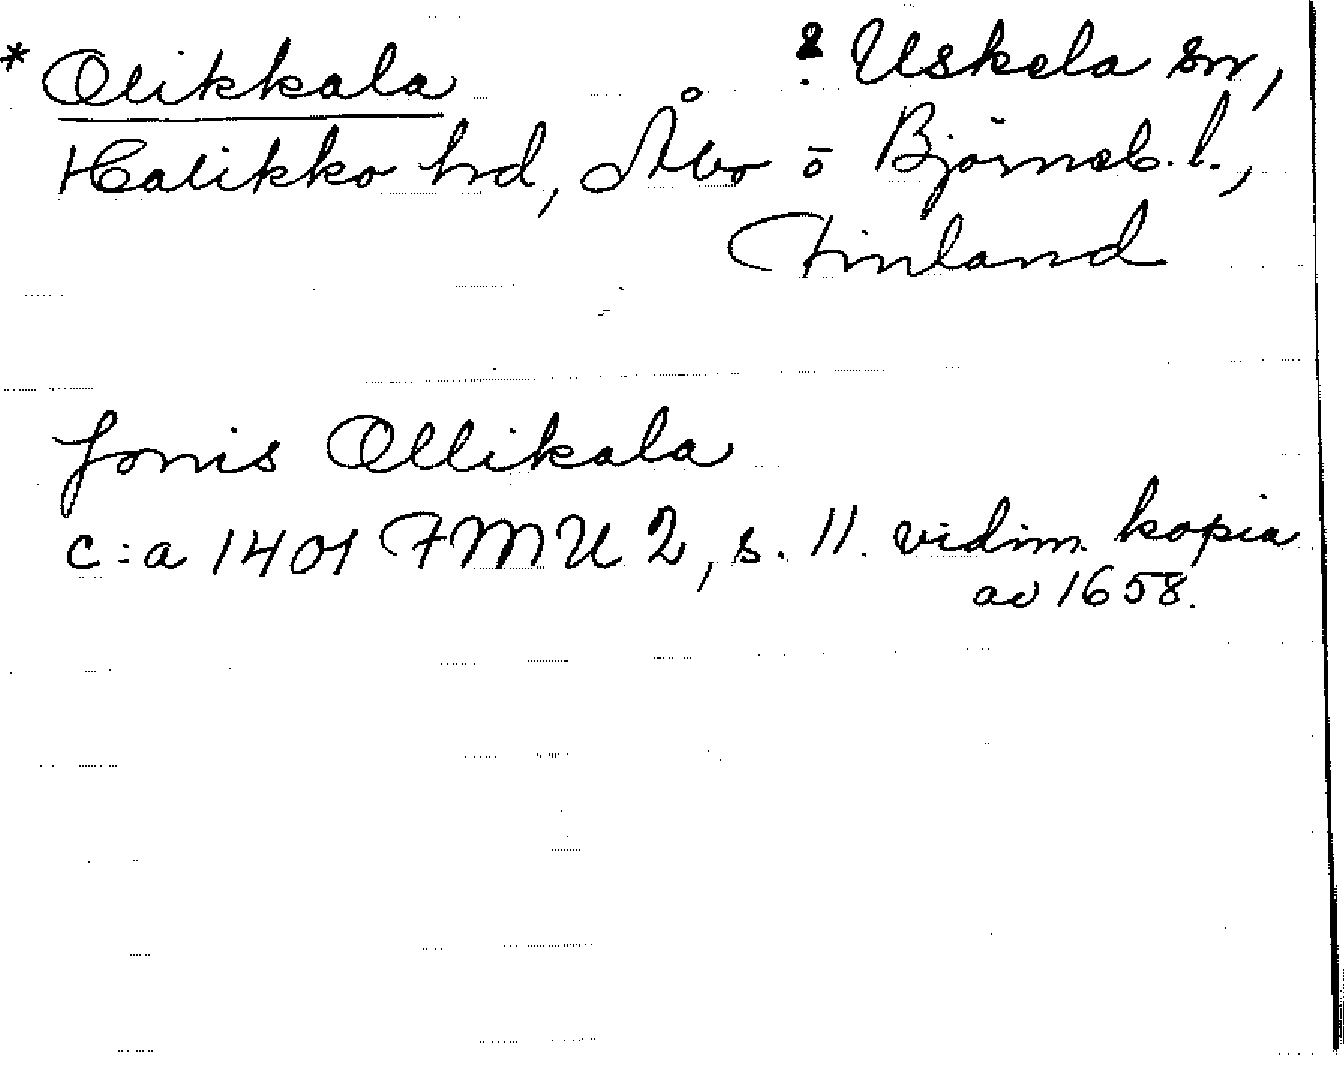 * Olikkala ? Uskela sn,
Halikko hd, Åbo o Björneb. l.,
Finland
Jonis Ollikala
c:a 1401 FMU 2, s. 11. vidim. kopia
av 1658.